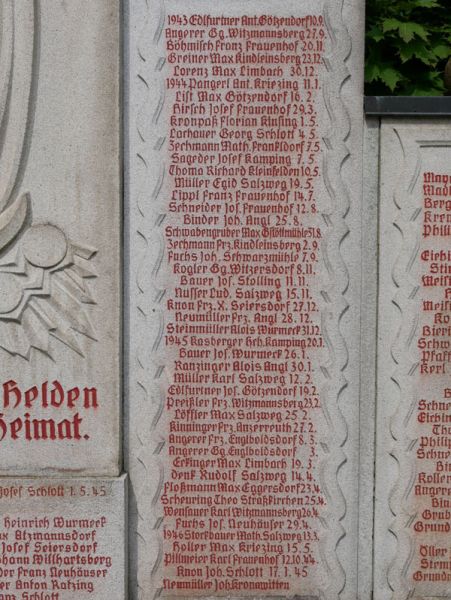 1943 Edlfurtner Ant. Götzendorf 10.9.
Angerer Gg. Witzmannsberg 27.9.
Böhmisch Franz Frauenhof 20.11.
Greiner Max Kindleinsberg 23.12.
Lorenz Max Limbach 30.12.
1944 Pangerl Ant. Kriezing 11.1.
List Max Götzendorf 16.2.
Hirsch Josef Frauenhof 29.3.
Kronpaß Florian Kinsing 1.5.
Lachauer Georg Schlott 4.5.
Zechmann Math. Frankldorf 7.5.
Sageder Josef Kamping 7.5.
Thoma Richard Kleinfelden 10.5.
Müller Egid Salzweg 19.5.
Lippl Franz Frauenhof 14.7.
Schneider Jos. Frauenhof 12.8.
Binder Joh. Angl 25.8.
Schwabengruber Max 31.8.
Zechmann Frz. Kindleinsberg 2.9.
Fuchs Joh. Schwarzmühle 7.9.
Kogler Gg. Witzersdorf 8.11.
Bauer Jos. Stolling 11.11.
Nusser Lud. Salzweg 15.11.
Knon Frz. X. Seiersdorf 27.12.
Neumüller Frz. Angl 28.12.
Steinmüller Alois Wurmeck 31.12.
1945 Kasberger Hch. Kamping 20.1.
Bauer Jos. Wurmeck 26.1.
Ranzinger Alois Angl 30.1.
Müller Karl Salzweg 12.2.
Edlfurtner Jos. Götzendorf 19.2.
Preißler Frz. Witzmannsberg 23.2.
Löffler Max Salzweg 25.2.
Kinninger Frz. Anzerreuth 27.2.
Angerer Frz. Englboldsdorf 8.3.
Angerer Gg. Englboldsdorf 3.
Erkinger Max Limbach 19.3.
Denk Rudolf Salzweg 14.4.
Floßmann Max Eggersdorf 23.4.
Scheuring Theo Straßkirchen 25.4.
Wensauer Karl Witzmannsberg 26.4.
Fuchs Jos. Neuhäuser 29.4.
1946 Storkbauer Math. Salzweg 13.3.
Holler Max Kriezing 15.5.
Pillmeier Karl Frauenhof 12.10.44.
Knon Joh. Schlott 17.1.45
Neumüller Joh. Kronawitten
Helden
Heimat.
Josef Schlott 1.5.45
Heinrich Wurmeck
Max Atzmannsdorf
Josef Seiersdorf
Johann Willhartsberg
der Franz Neuhäuser
er Anton Ratzing
Franz Schlott